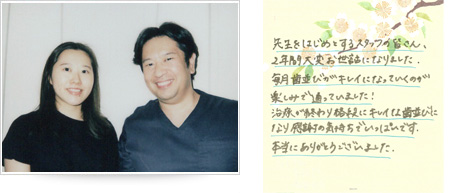 先生をはじめとするスタッフの皆さん、
2年間大変お世話になりました。
毎月歯並びがキレイになっていくのが
楽しみで通っていました!
治療が終わり格段にキレイな歯並びに
なり感謝の気持ちでいっぱいです。
本当にありがとうございました。